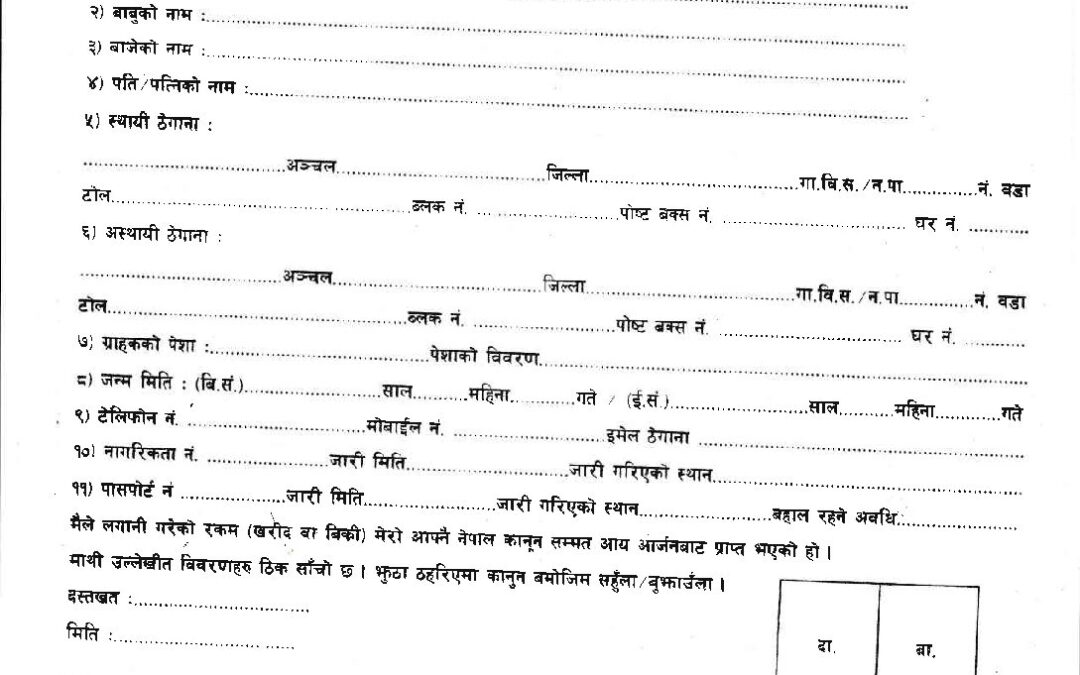 २) बाबुको नाम :........................
३) बाजेको नाम :........................
४) पति/पत्निको नाम :........................
५) स्थायी ठेगाना :
........................अञ्चल........................जिल्ला........................गा.बि.स./न.पा.............नं. वडा
टोल........................ब्लक नं. ........................पोष्ट बक्स नं. ........................ घर नं. ............
६) अस्थायी ठेगाना :
........................अञ्चल........................जिल्ला........................गा.वि.स./न.पा.............नं. वडा
टोल........................ब्लक नं. ........................पोष्ट बक्स नं. ........................ घर नं. ............
७) ग्राहकको पेशा :........................पेशाको विवरण........................
८) जन्म मिति : (बि.सं.)........................साल.........महिना............गते / (ई.सं.)........................साल.........महिना............गते
९) टेलिफोन नं. ........................मोबाईल नं. ........................इमेल ठेगाना ........................
१०) नागरिकता नं. ........................जारी मिति........................जारी गरिएको स्थान........................
११) पासपोर्ट नं ........................जारी मिति........................जारी गरिएको स्थान........................बहाल रहने अवधि:........................
मैले लगानी गरेको रकम (खरीद वा बिक्री) मेरो आफ्नै नेपाल कानून सम्मत आय आर्जनबाट प्राप्त भएको हो ।
माथी उल्लेखीत विवरणहरु ठिक साँचो छ । झुठा ठहरिएमा कानुन बमोजिम सहुँला/बुझाउँला ।
दस्तखत :........................
मिति :........................
दा. बा.